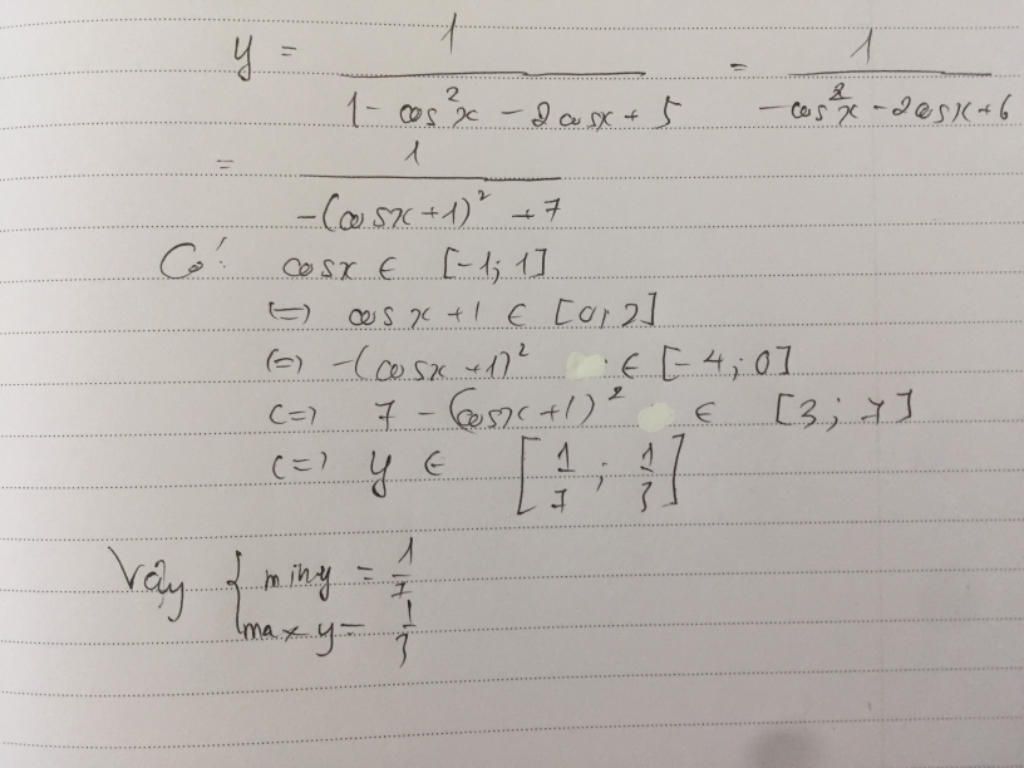 y = 1/(1 - cos²x - 2cosx + 5) = 1/(-cos²x - 2cosx + 6)
= 1/(-(cosx+1)² + 7)
Có: cosx ∈ [-1; 1]
(=) cosx +1 ∈ [0; 2]
(=) -(cosx +1)² ∈ [-4; 0]
(=) 7 - (cosx+1)² ∈ [3; 7]
(=) y ∈ [1/7; 1/3]
Vậy { min y = 1/7
max y = 1/3